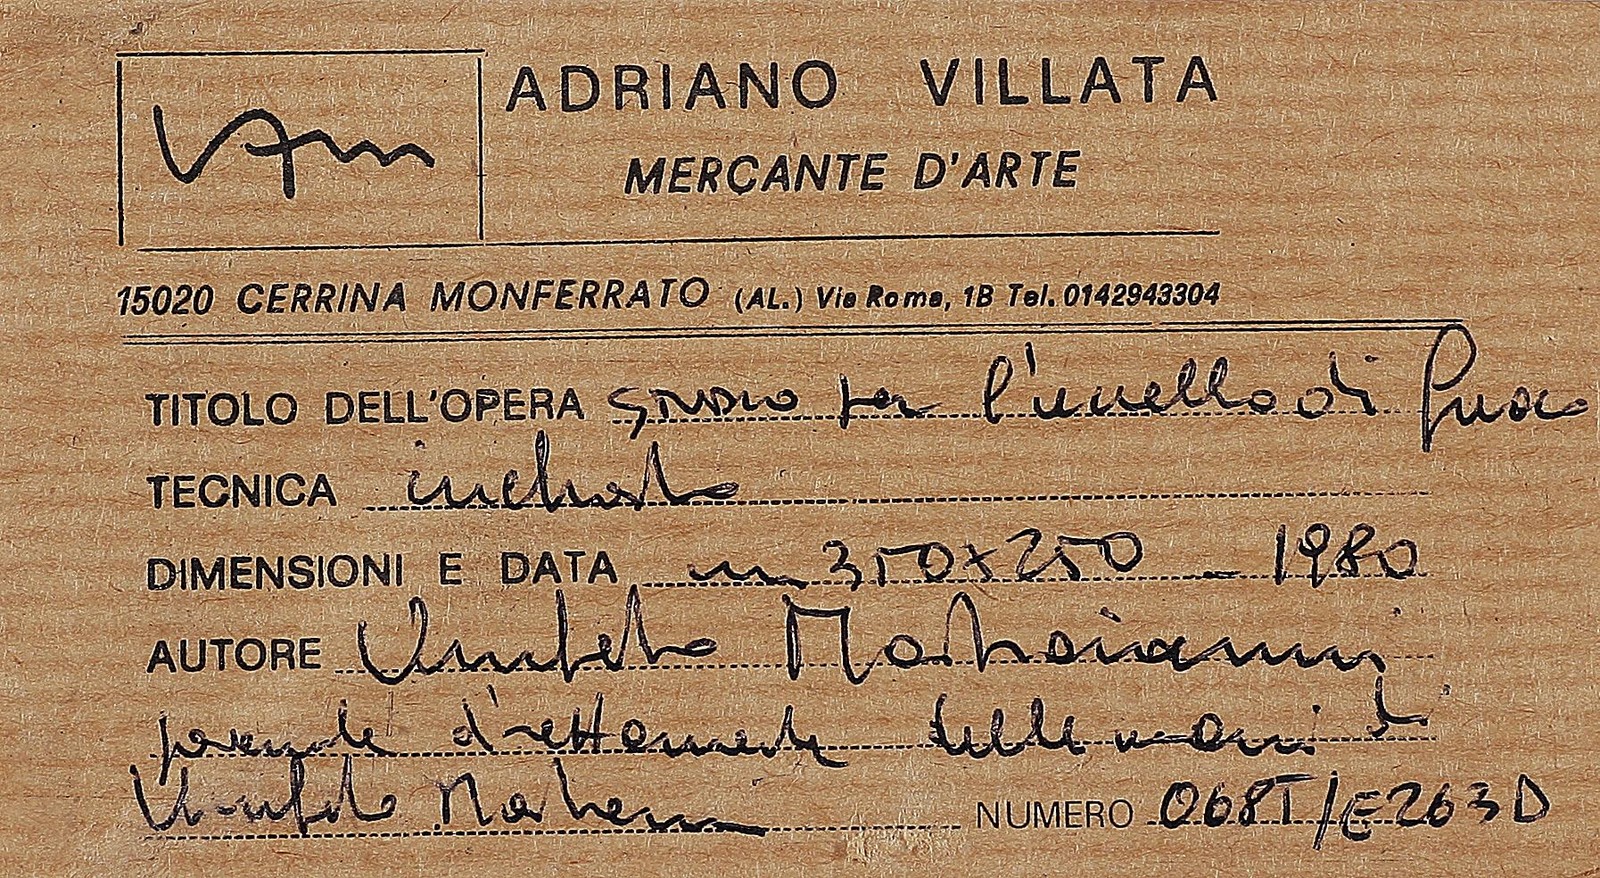 ADRIANO VILLATA
MERCANTE D'ARTE
15020 CERRINA MONFERRATO (AL.) Via Roma, 1B Tel. 0142943304
TITOLO DELL'OPERA STUDIO per l'anello di fuoco
TECNICA inchiostro
DIMENSIONI E DATA mm 350x250 - 1980
AUTORE Umberto Mastroianni
proveniente direttamente dalle mani di
Umberto Mastroianni NUMERO 068T/E263D